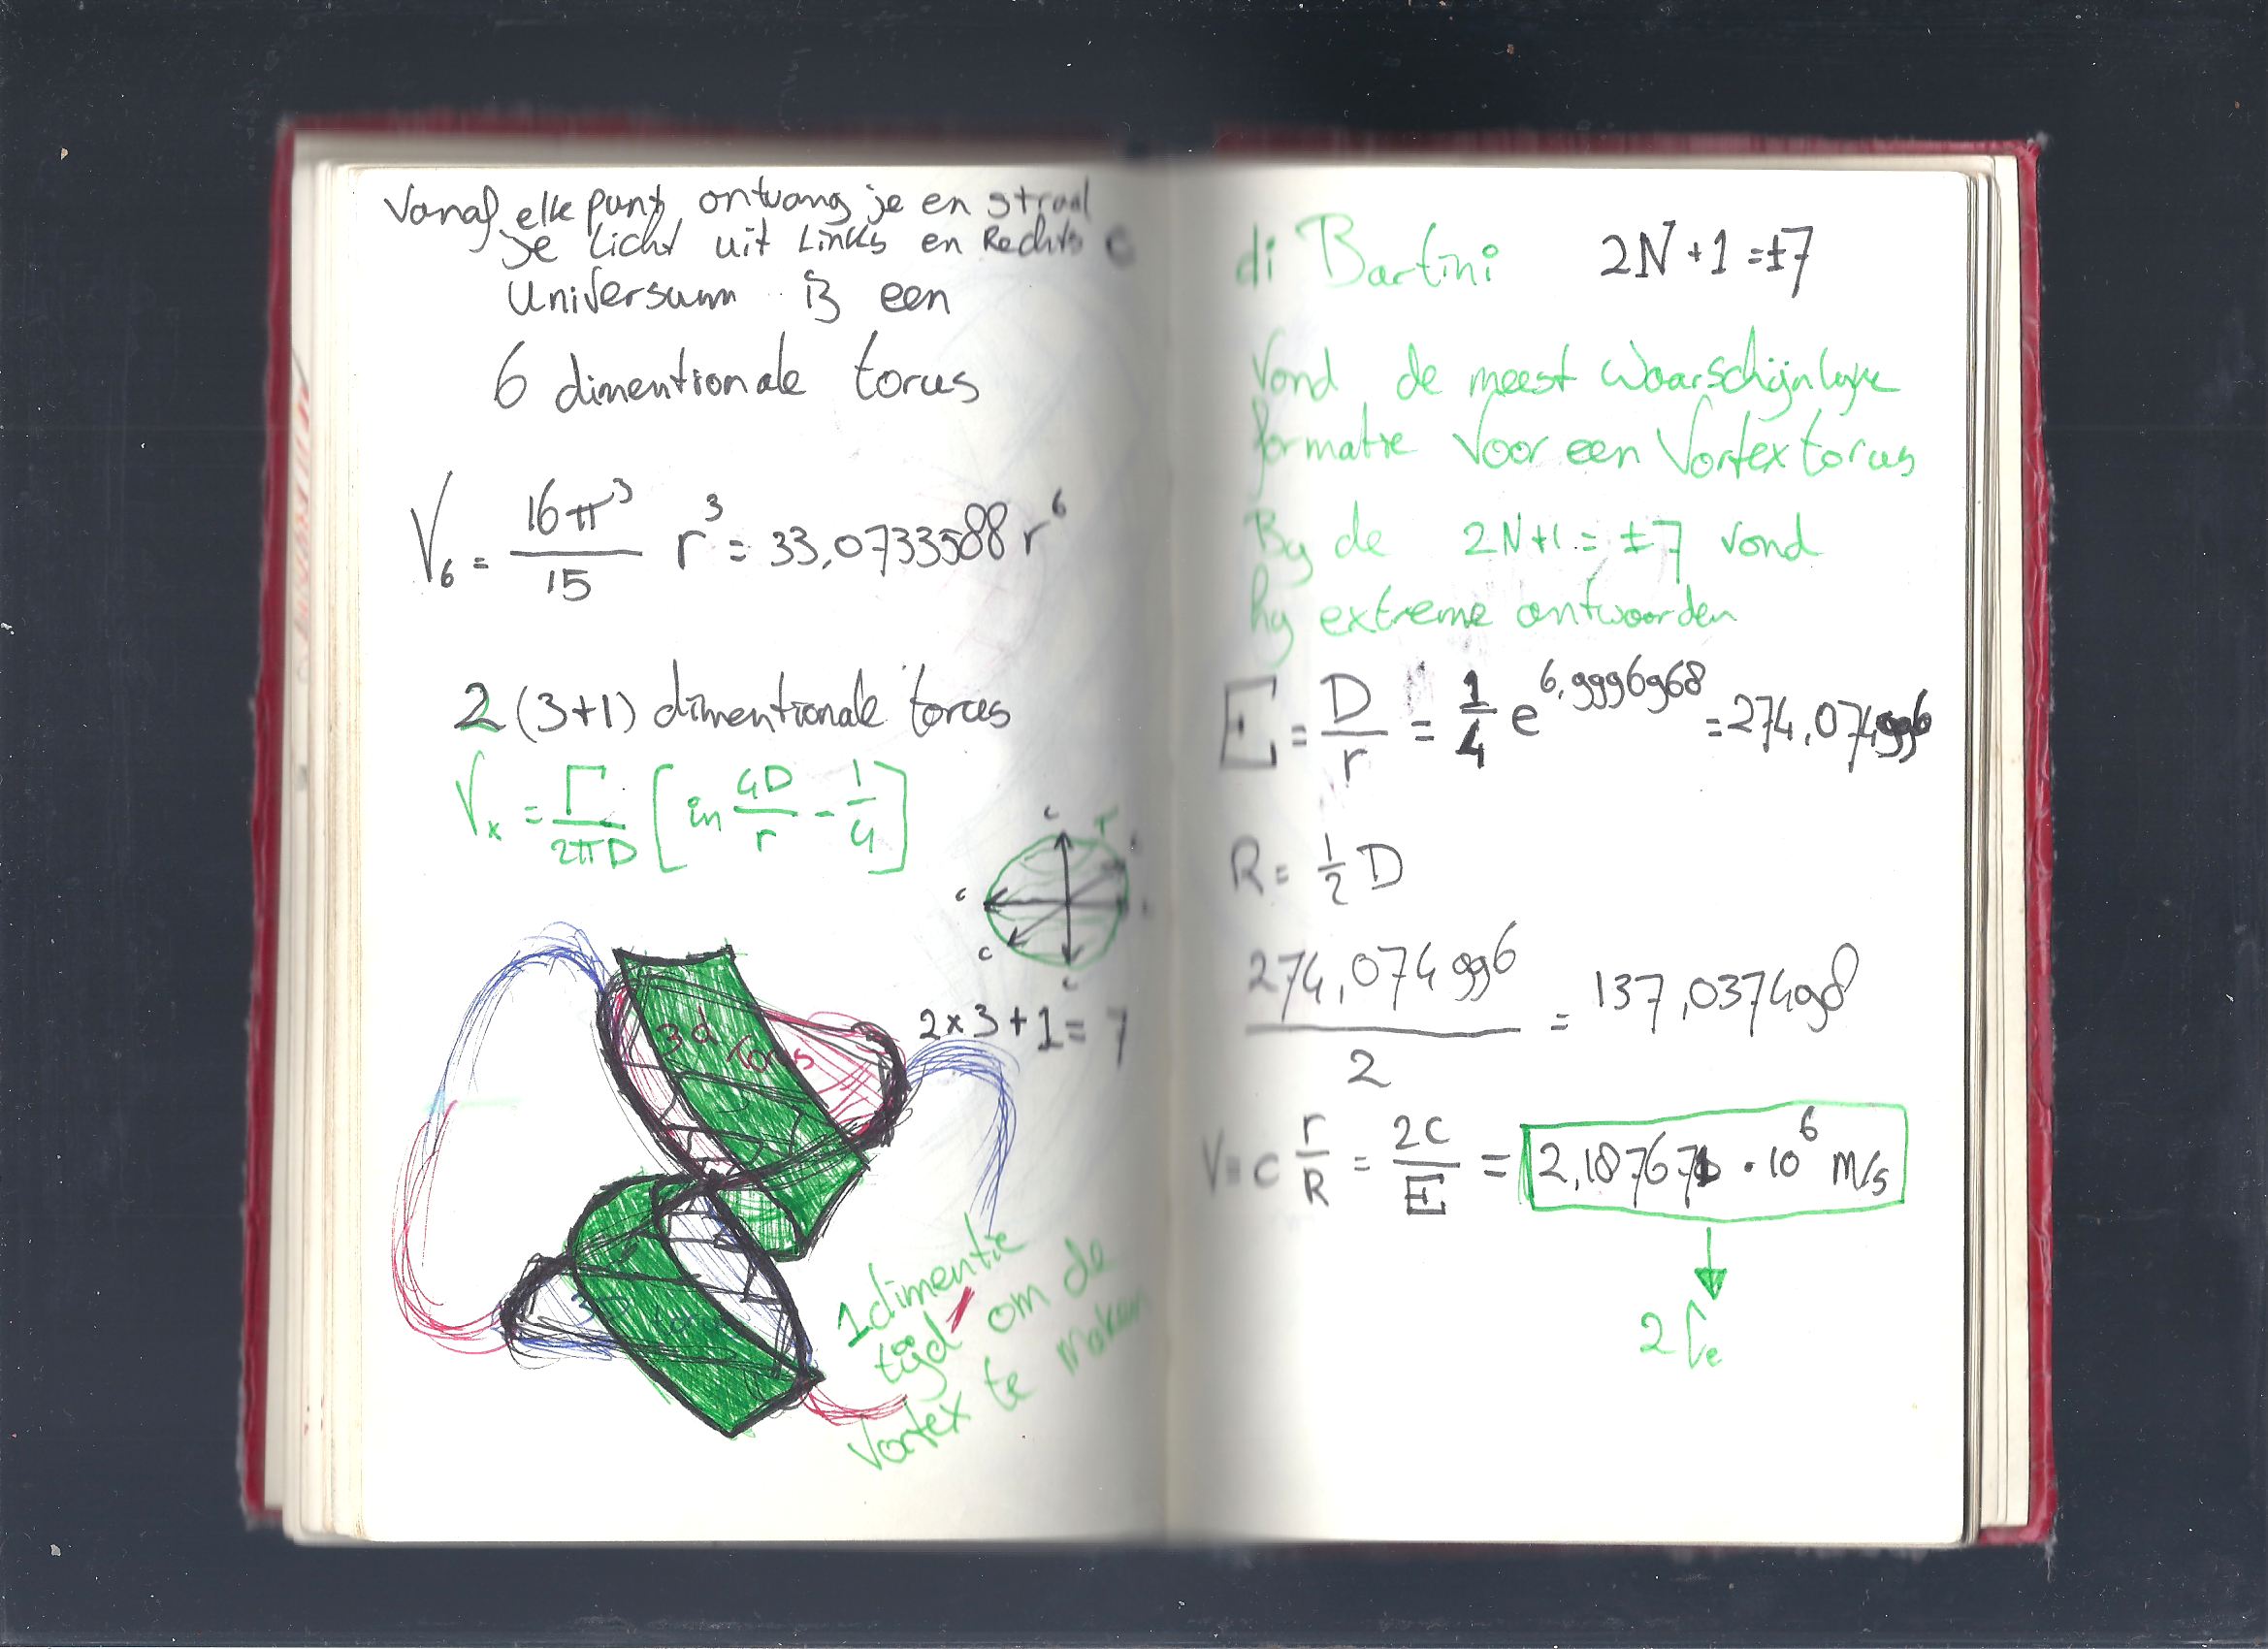 Vanaf elke punt ontvang je en straal
je licht uit Links en Rechts
Universum is een
6 dimentionale torus
V₆ = 16π³/15 r³ = 33,0733588 r⁶
2 (3+1) dimentionale torus
Vₓ = Γ/2πD [ln 4D/r - 1/4]
c T
c
c
c
2×3+1=7
3d torus
1 dimentie
tijd om de
vortex te maken
di Bartini 2N+1=±7
Vond de meest waarschijnlijke
formatie voor een Vortex torus
By de 2N+1=±7 vond
hy extreme antwoorden
E = D/r = 1/4 e^6,9996968 = 274,074996
R = 1/2 D
274,074996/2 = 137,037498
V = c r/R = 2c/E = 2,187671 · 10⁶ m/s
2 Cₑ